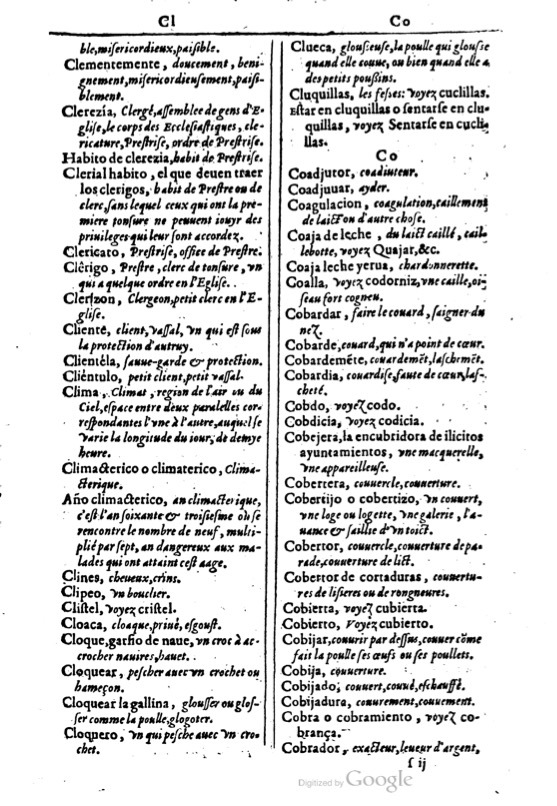 Cl
ble,miſericordieux,paiſible.
Clementemente, doucement, beni-
gnement,miſericordieuſement,paiſi-
blement.
Clerezía, Clergé,aſſemblee de gens d'E-
gliſe,le corps des Eccleſiaſtiques, cle-
ricature,Preſtriſe, ordre de Preſtriſe.
Habito de clerezia,habit de Preſtriſe.
Clerial habito, el que deuen traer
los clerigos, habis de Preſtre ou de
clerc,ſans lequel ceux qui ont la pre-
miere tonſure ne peuuent iouyr des
priuileges qui leur ſont accordez.
Clericato, Preſtriſe, office de Preſtre.
Clêrigo, Preſtre, clerc de tonſure, vn
qui a quelque ordre en l'Egliſe.
Clerizon, Clergeon,petit clerc en l'E-
gliſe.
Cliente, client,vaſſal, vn qui eſt ſous
la protection d'autruy.
Clientéla, ſauue-garde & protection.
Cliêntulo, petit client,petit vaſſal.
Clima, Climat, region de l'air ou du
Ciel,eſpace entre deux paralelles cor-
reſpondantes l'vne à l'autre,auquel ſe
varie la longitude du iour, de demye
heure.
Climacterico o climaterico, Clima-
cterique.
Año climacterico, an climacterique,
c'eſt l'an ſoixante & troiſieſme où ſe
rencontre le nombre de neuf, multi-
plié par ſept, an dangereux aux ma-
lades qui ont attaint ceſt aage.
Clines, cheueux,crins.
Clipeo, vn bouclier.
Cliſtel, voyez criſtel.
Cloaca, cloaque,priué, eſgouſt.
Cloque,garfio de naue, vn croc à ac-
crocher nauires,hauet.
Cloquear, peſcher auec vn crochet ou
hameçon.
Cloquear la gallina, glouſſer ou gloſ-
ſer comme la poulle,glogoter.
Cloquero, vn qui peſche auec vn cro-
chet.
Co
Clueca, glouſſeuſe,la poulle qui glouſſe
quand elle couue, ou bien quand elle a
des petits pouſſins.
Cluquillas, les feſſes: voyez cuclillas.
Eſtar en cluquillas o ſentarſe en clu-
quillas, voyez Sentarſe en cucli-
llas.
Co
Coadjutor, coadiuteur.
Coadjuuar, ayder.
Coagulacion, coagulation,caillement
de laict ou d'autre choſe.
Coaja de leche, du laict caillé, cail-
lebotte, voyez Quajar,&c.
Coaja leche yerua, chardonnerette.
Coalla, voyez codorniz,vne caille,oi-
ſeau fort cogneu.
Cobardar, faire le couard, ſaigner du
nez.
Cobarde,couard,qui n'a point de cœur.
Cobardemẽte, couardemẽt,laſchemẽt.
Cobardia, couardiſe,faute de cœur,laſ-
cheté.
Cobdo, voyez codo.
Cobdicia, voyez codicia.
Cobejera,la encubridora de ilicitos
ayuntamientos, vne macquerelle,
vne appareilleuſe.
Cobertera, couuercle,couuerture.
Cobertijo o cobertizo, vn couuert,
vne loge ou logette, vne galerie, l'a-
uance & ſaillie d'vn toict.
Cobertor, couuercle,couuerture de pa-
rade,couuerture de lict.
Cobertor de cortaduras, couuertu-
res de liſieres ou de rongneures.
Cobierta, voyez cubierta.
Cobierto, Voyez cubierto.
Cobijar,couurir par deſſus,couuer cõme
fait la poulle ſes œufs ou ſes poullets.
Cobija, couuerture.
Cobijado, couuert, couué,eſchauffé.
Cobijadura, couurement,couuement.
Cobra o cobramiento, voyez co-
brança.
Cobrador, exacteur,leueur d'argent,
ſ ij
Digitized by Google